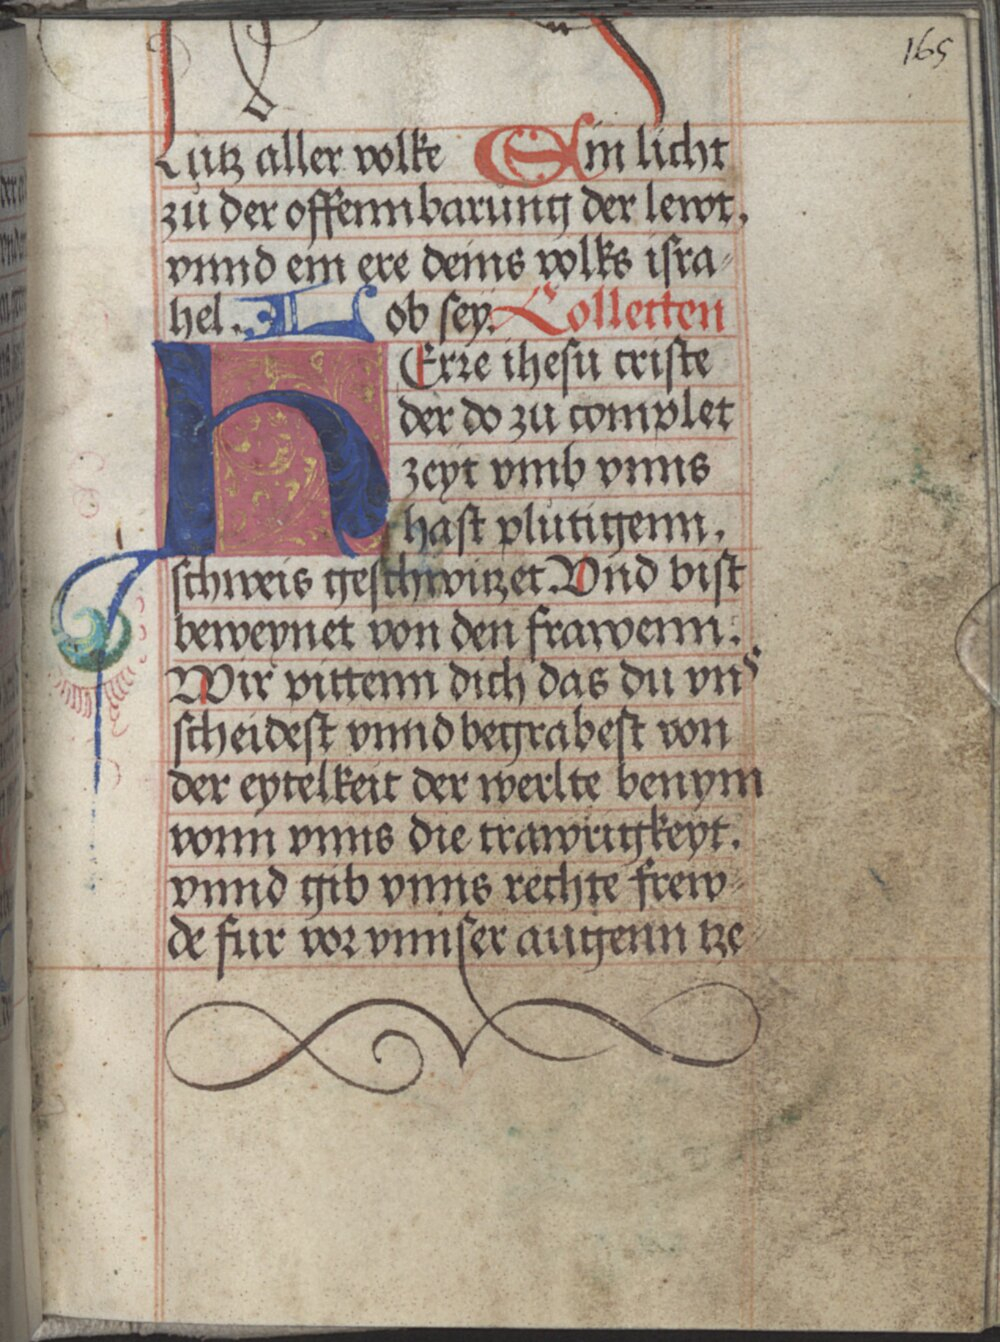 165
lütz aller volke Ein licht
zu der offennbarung der lewt,
vnnd ein ere deins volks isra-
hel. Lob sey. Collecten
HErre ihesu criste
der do zu complet
zeyt vmb vnns
hast plutigenn.
schweis geschwitzet Vnd bist
beweynet von den frawenn.
Wir pittenn dich das du vns
scheidest vnnd begrabest von
der eytelkeit der werlte benym
vonn vnns die trawrigkeyt.
vnnd gib vnns rechte frew-
de fur vor vnnser augenn tze